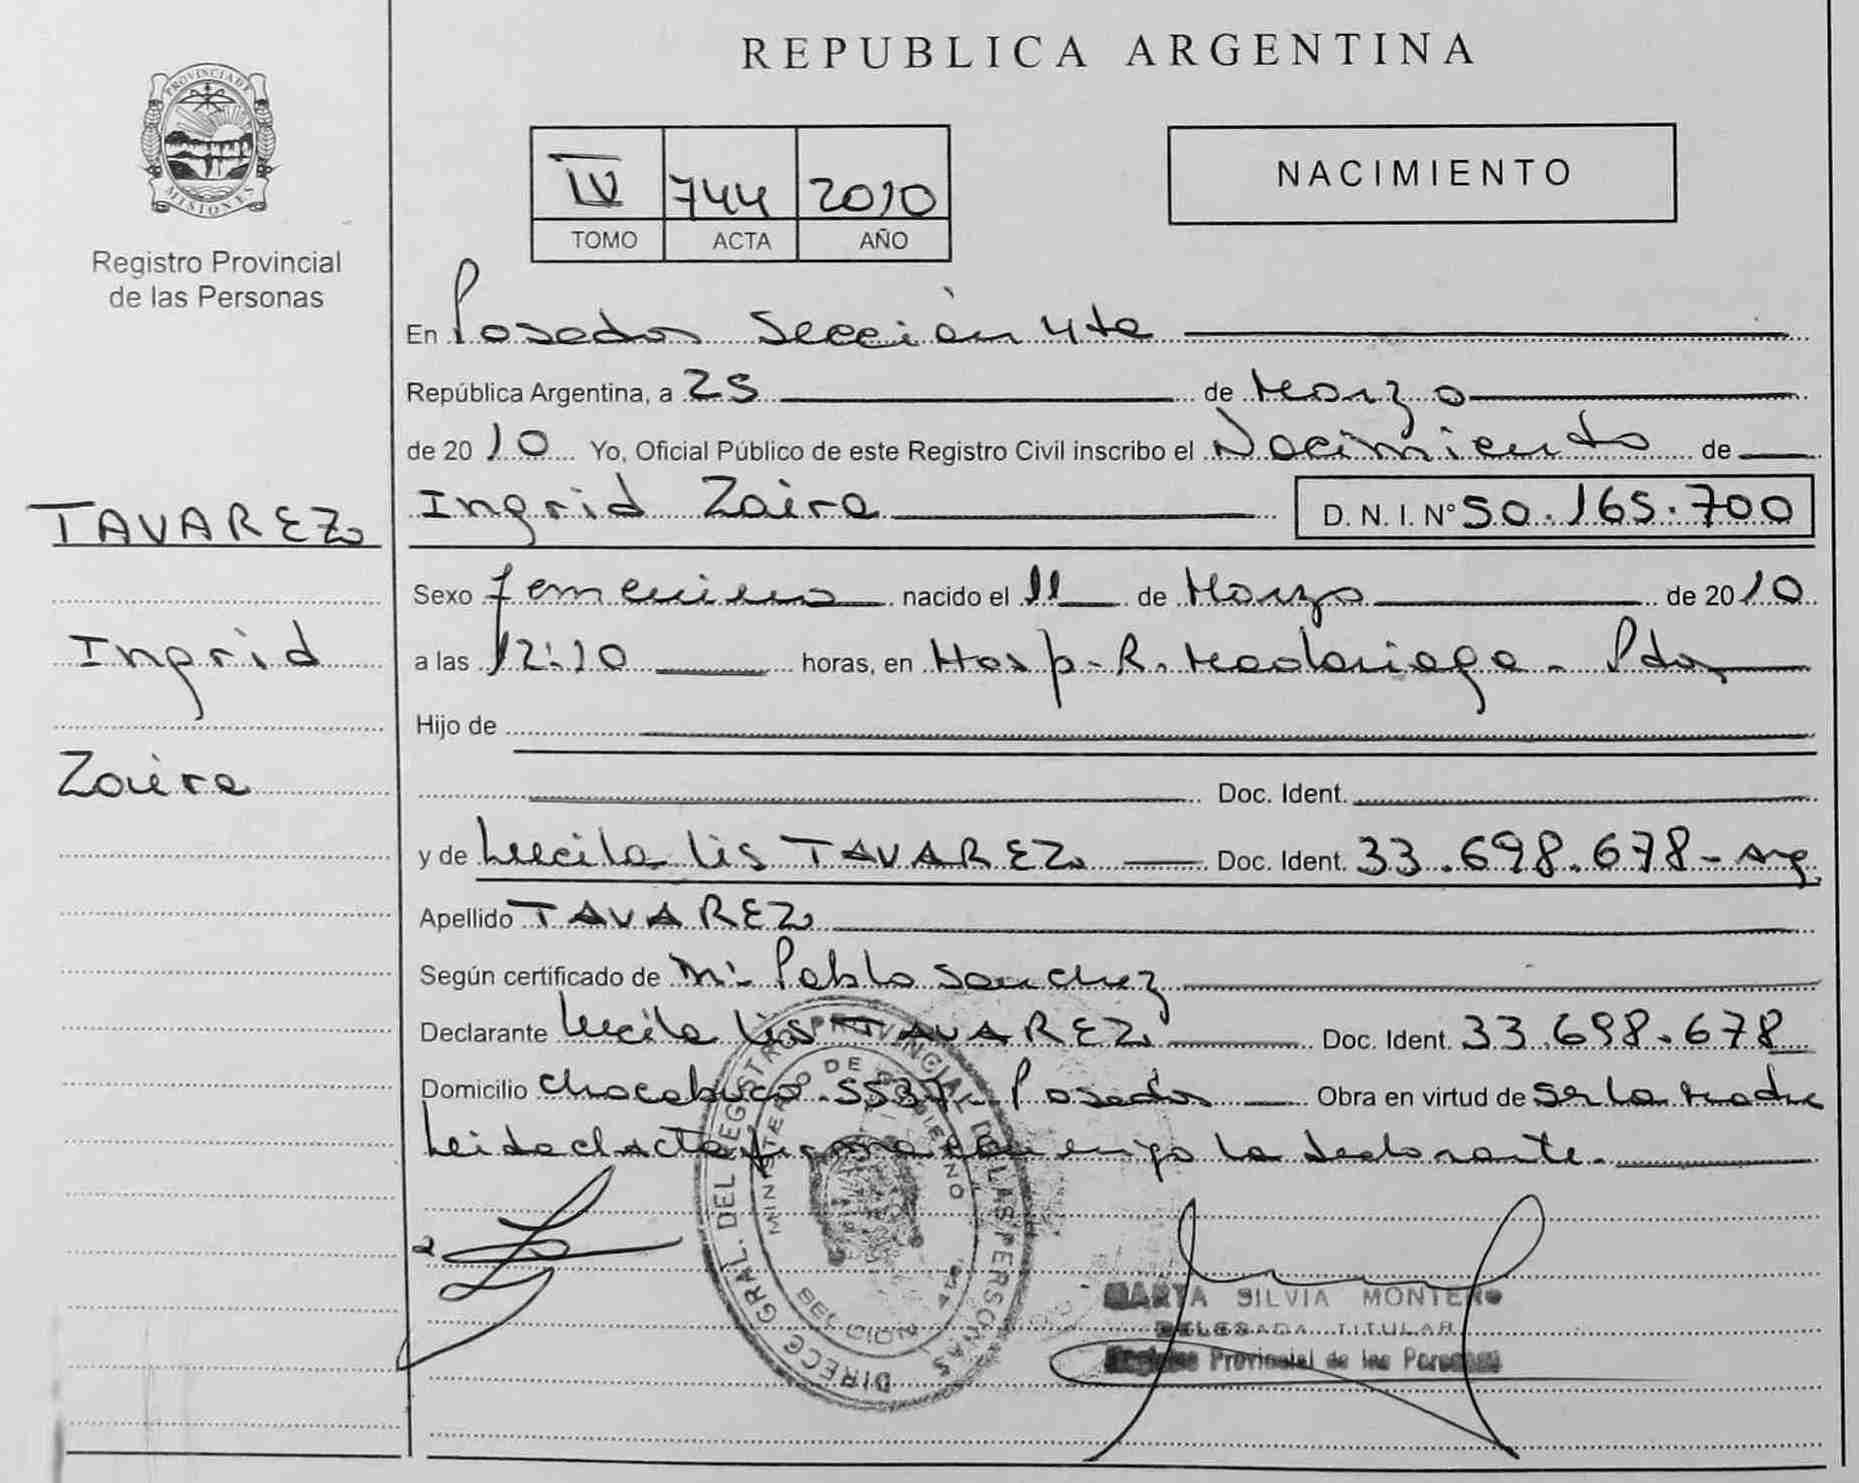 REPUBLICA ARGENTINA
PROVINCIA DE
MISIONES
Registro Provincial
de las Personas
IV 744 2010
TOMO ACTA AÑO
NACIMIENTO
En Posadas Sección 4ta
República Argentina, a 25 de Marzo
de 2010 Yo, Oficial Público de este Registro Civil inscribo el Nacimiento de
TAVAREZ
Ingrid
Zaira
Ingrid Zaira D. N. I. N° 50.165.700
Sexo femenino nacido el 11 de Marzo de 2010
a las 12:10 horas, en Hosp. R. Madariaga - Pdas
Hijo de
Doc. Ident.
y de Lucila Lis TAVAREZ Doc. Ident. 33.698.678 - Arg.
Apellido TAVAREZ
Según certificado de Pablo Sanchez
Declarante Lucila Lis TAVAREZ Doc. Ident. 33.698.678
Domicilio Chacabuco 5537 - Posadas Obra en virtud de ser la madre
Leida el Acta firma conmigo la declarante.
DIRECC GRAL. DEL REGISTRO PROVINCIAL DE LAS PERSONAS
MINISTERIO DE GOBIERNO
MARTA SILVIA MONTERO
DELEGADA TITULAR
Registro Provincial de las Personas